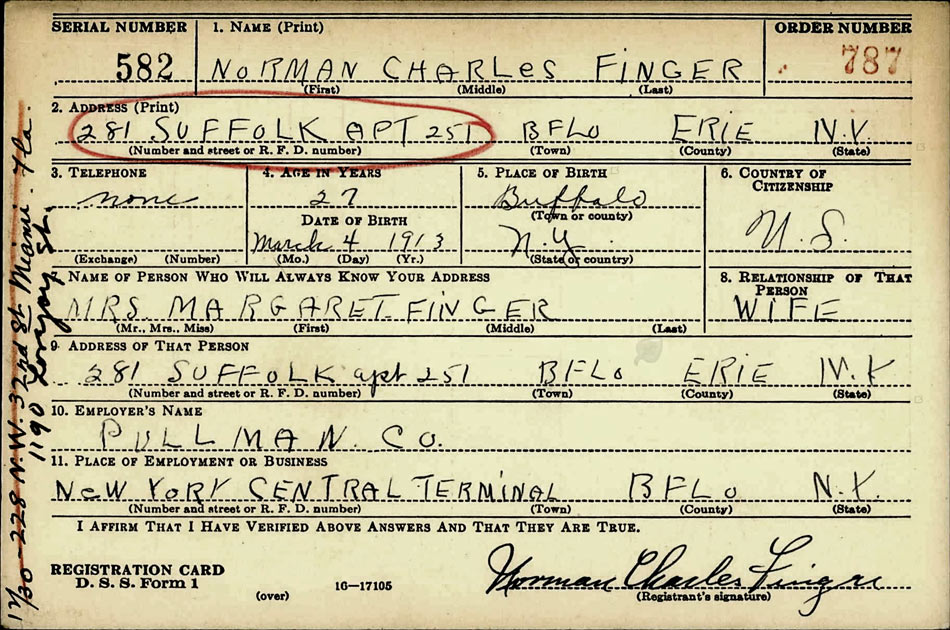 SERIAL NUMBER 1. NAME (Print) ORDER NUMBER
582 NORMAN CHARLES FINGER 787
(First) (Middle) (Last)
2. ADDRESS (Print)
281 SUFFOLK APT 251 BFLO ERIE N.Y.
(Number and street or R. F. D. number) (Town) (County) (State)
3. TELEPHONE 4. AGE IN YEARS 5. PLACE OF BIRTH 6. COUNTRY OF CITIZENSHIP
none 27 Buffalo
DATE OF BIRTH (Town or county)
March 4 1913 N.Y. U.S.
(Exchange) (Number) (Mo.) (Day) (Yr.) (State or country)
7. NAME OF PERSON WHO WILL ALWAYS KNOW YOUR ADDRESS 8. RELATIONSHIP OF THAT PERSON
MRS. MARGARET FINGER WIFE
(Mr., Mrs., Miss) (First) (Middle) (Last)
9. ADDRESS OF THAT PERSON
281 SUFFOLK apt 251 BFLO ERIE N.Y
(Number and street or R. F. D. number) (Town) (County) (State)
10. EMPLOYER'S NAME
PULLMAN. CO.
11. PLACE OF EMPLOYMENT OR BUSINESS
NeW YORK CENTRAL TERMINAL BFLO N.Y.
(Number and street or R. F. D. number) (Town) (County) (State)
I AFFIRM THAT I HAVE VERIFIED ABOVE ANSWERS AND THAT THEY ARE TRUE.
REGISTRATION CARD
D. S. S. Form 1 16-17105 Norman Charles Finger
(over) (Registrant's signature)
12/30-228 N.W. 32nd St. Miami. Fla.
1190 St.